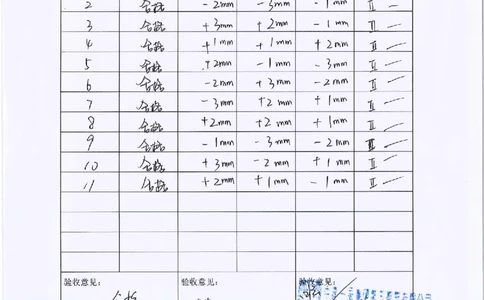 2 合格 -2mm -3mm -1mm II —
3 合格 +3mm +2mm -1mm II —
4 合格 +1mm +1mm +2mm II —
5 合格 +2mm -1mm -3mm II —
6 合格 -2mm +3mm -2mm II —
7 合格 -3mm +2mm +1mm II —
8 合格 +2mm +2mm +1mm II —
9 合格 -1mm -3mm -2mm II —
10 合格 +3mm -2mm +1mm II —
11 合格 +2mm +1mm -1mm II —
验收意见： 验收意见： 验收意见：
合格